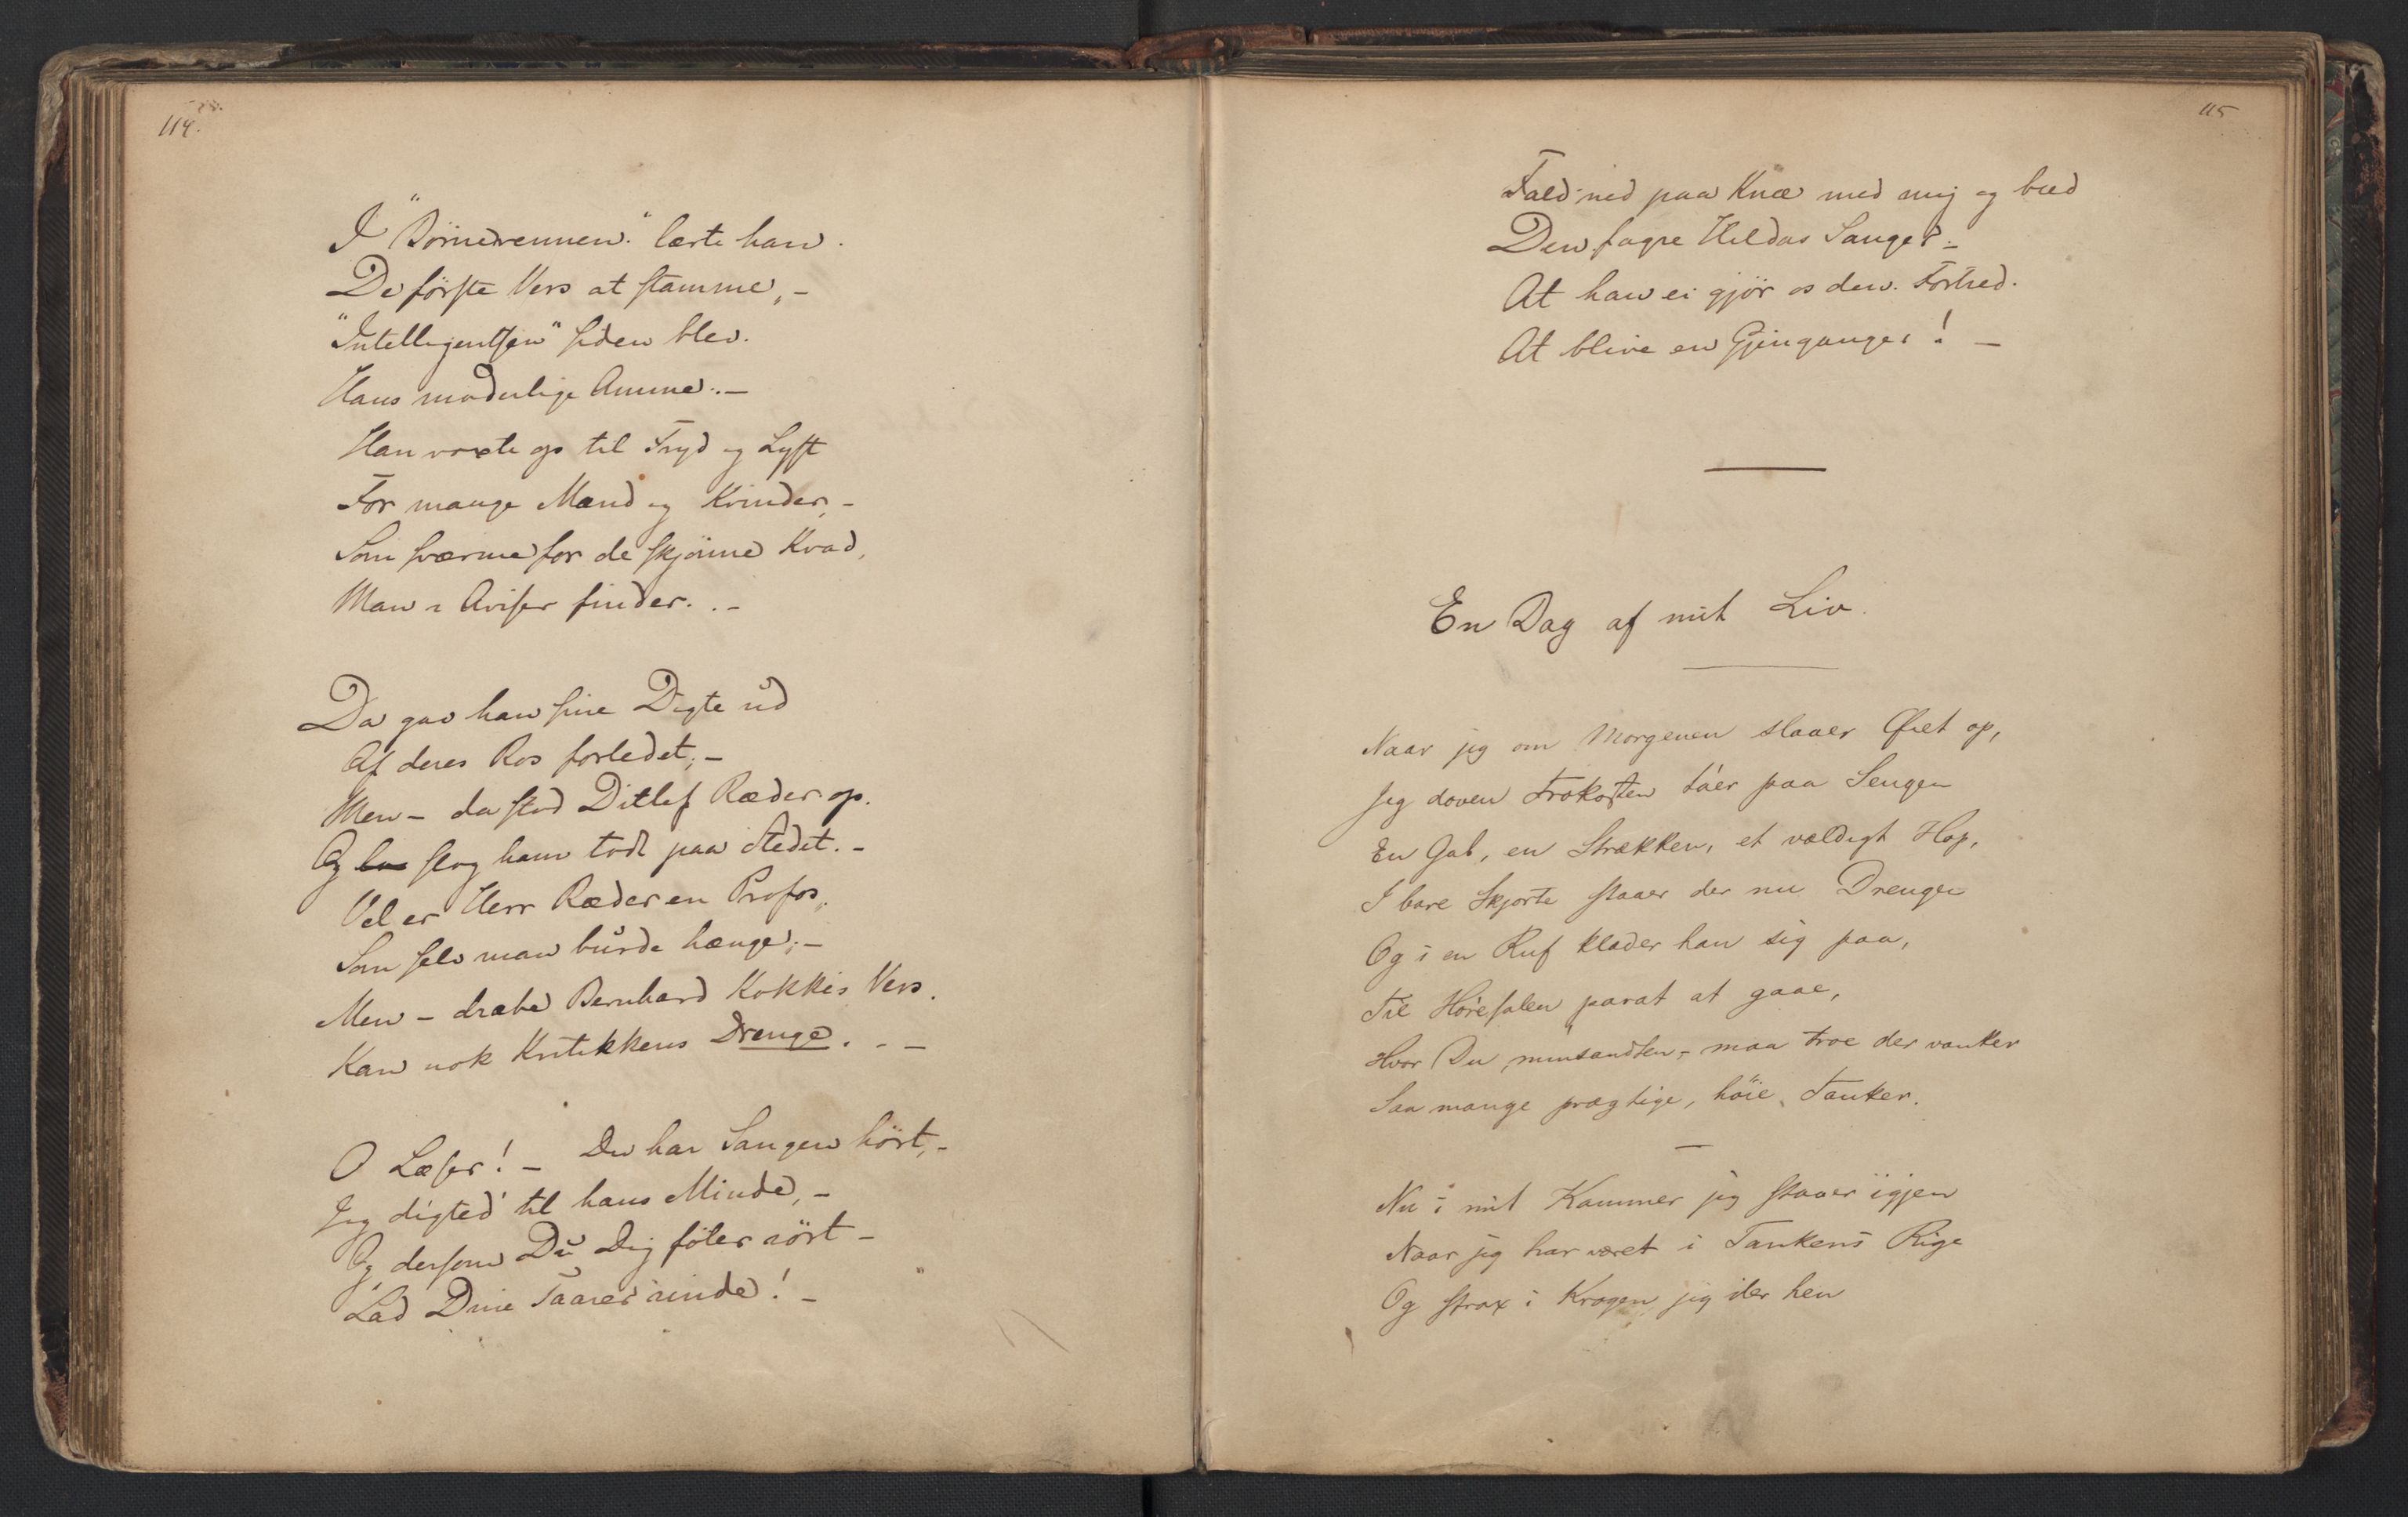 114.
I "Börnevennen." lærte han.
De förste Vers at stamme, –
"Intelligentsen" siden blev.
Hans moderlige Amme. –
Han voxte op til Fryd og Lyst
For mange Mænd og Kvinder, –
Som sværme for de skjönne Kvad,
Man i Aviser finder. . –
Da gav han sine Digte ud
Af deres Ros forledet; –
Men – da stod Ditlef Ræder op.
Og slog ham todt paa Stedet. –
Vel er Herr Ræder en Profos,
Som selv man burde hænge; –
Men – dræbe Bernhard Kokkis Vers.
Kan nok Kritikkens Drenge. . –
O Læser! – Du har Sangen hört, –
Jeg digted' til hans Minde, –
Og dersom Du Dig föler rört –
Lad Dine Taarer rinde! –
115
Fald ned paa Knæ med mig og bed
Den fagre Hildas Sanger –
At han ei gjör os den Fortred.
At blive en Gjenganger! –
En Dag af mit Liv.
Naar jeg om Morgenen slaaer Øiet op,
Jeg doven Frokosten ta'er paa Sengen
En Gab, en Strækken, et vældigt Hop,
I bare Skjorte staaer der nu Drengen
Og i en Ruf klæder han sig paa,
Til Høresalen parat at gaae,
Hvor Du, minsandten, – maa troe der vanker
Saa mange prægtige, höie Tanker.
Nu i mit Kammer jeg staaer igjen
Naar jeg har været i Tankens Rige
Og strax i Krogen jeg iler hen